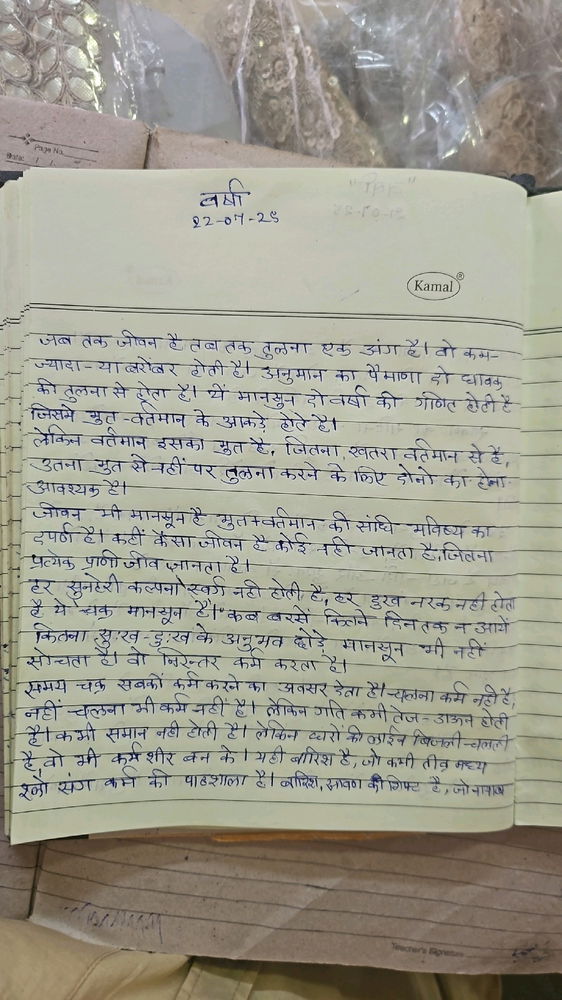 Page No.
Date: / /
वर्षा
22-07-25
Kamal
जब तक जीवन है तब तक तुलना एक अंग है। वो कम-
ज्यादा-या बरोबर होती है। अनुमान का पैमाणा दो धावक
की तुलना से होता है। यें मानसुन दो वर्षा की गणित होती है
जिसमे भुत-वर्तमान के आकडे होते है।
लेकिन वर्तमान इसका भुत है, जितना, खतरा वर्तमान से है,
उतना भुत से नहीं पर तुलना करने के लिए दोनो का होना
आवश्यक है।
जीवन भी मानसुन है भुत+वर्तमान की संधि भविष्य का
दपर्ण है। कहीं कैसा जीवन है कोई नही जानता है, जितना
प्रत्येक प्राणी जीव जानता है।
हर सुनहेरी कल्पना स्वर्ग नही होती है, हर दुख नरक नही होता
है ये चक्र मानसून है। कब बरसें कितने दिन तक न आयें
कितना सु:ख-दु:ख के अनुभव छोडे मानसून भी नहीं
सोचता है। वो निरन्तर कर्म करता है।
समय चक्र सबकों कर्म करने का अवसर देता है। चलना कर्म नही है,
नहीं चलना भी कर्म नहीं है। लेकिन गति कभी तेज- होती
है। कभी समान नही होती है। लेकिन की लाईन बिजली चलती
है वो भी कर्मशीर बन के। यही बारिश है, जो कभी तीव्र मध्य
संग कर्म की पाठशाला है। बारिश, सावण की गिफ्ट है, जो
Teacher's Signature